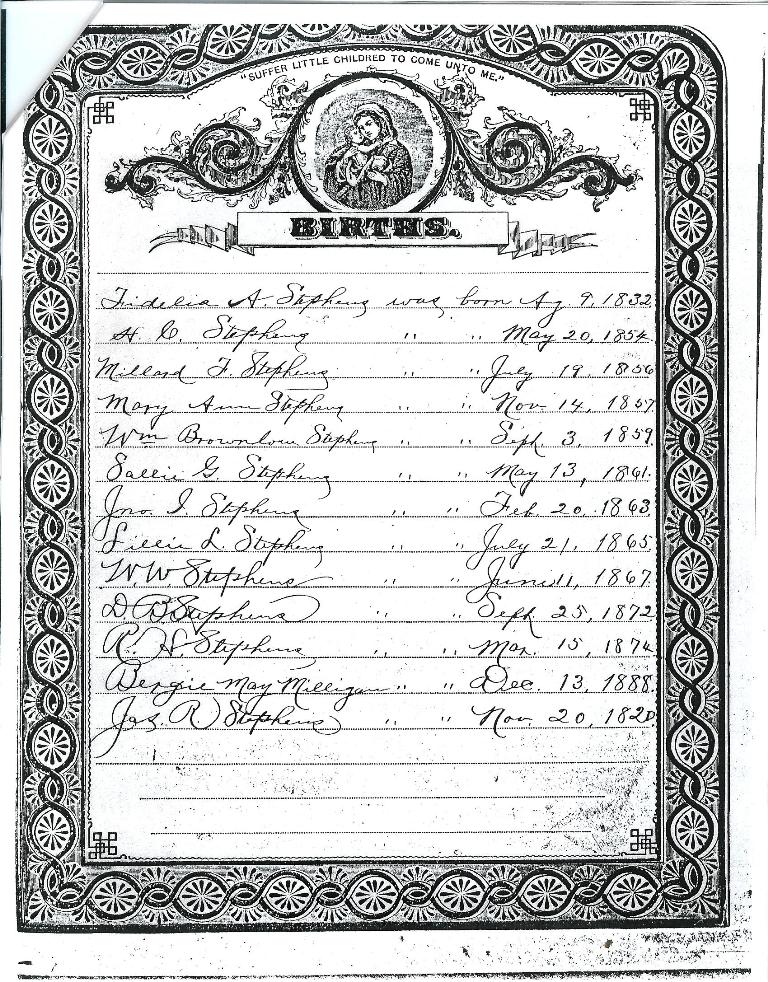 "SUFFER LITTLE CHILDRED TO COME UNTO ME."
BIRTHS.
Fidelia A. Stephens was born Ag 9, 1832
H. C. Stephens " " May 20, 1854
Millard F. Stephens " " July 19, 1856
Mary Ann Stephens " " Nov 14, 1857
Wm Brownlow Stephens " " Sept 3, 1859
Sallie G. Stephens " " May 13, 1861.
Jno. I. Stephens " " Feb. 20, 1863
Lillie L. Stephens " " July 21, 1865
W W. Stephens " " June 11, 1867
D B Stephens " " Sept 25, 1872
R. H. Stephens " " Mar. 15, 1874
Bergie May Milligan " " Dec. 13, 1888
Jas R Stephens " " Nov. 20, 1820